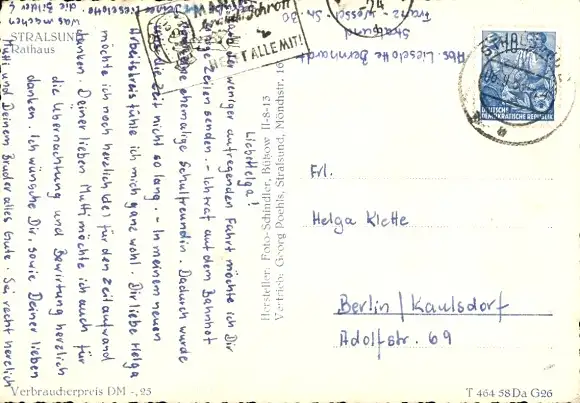 STRALSUND
Rathaus
Liebe Helga!
der weniger aufregenden Fahrt möchte ich Dir
einige Zeilen senden. - Ich traf auf dem Bahnhof
eine ehemalige Schulfreundin. Dadurch wurde
die Zeit nicht so lang. - In meinem neuen
Arbeitskreis fühle ich mich ganz wohl. Dir liebe Helga
möchte ich noch herzlich für den Zeitaufwand
danken. Deiner lieben Mutti möchte ich auch für
die Übernachtung und Bewirtung herzlich
danken. Ich wünsche Dir, sowie Deiner lieben
Mutti und Deinem Bruder alles Gute. Sei recht herzlich
Lieselotte
was machen die Bilder?
Abs. Lieselotte Bernhardt
Stralsund
Franz-Wessel-Str.
HELFT ALLE MIT!
24
Hersteller: Foto-Schindler, Bützow II-8-15
Vertrieb: Georg Poehls, Stralsund, Mönchstr.
DEUTSCHE
DEMOKRATISCHE REPUBLIK
Frl.
Helga Klette
Berlin/Kaulsdorf
Adolfstr. 69
Verbraucherpreis DM -,25
T 464 58 Da G26